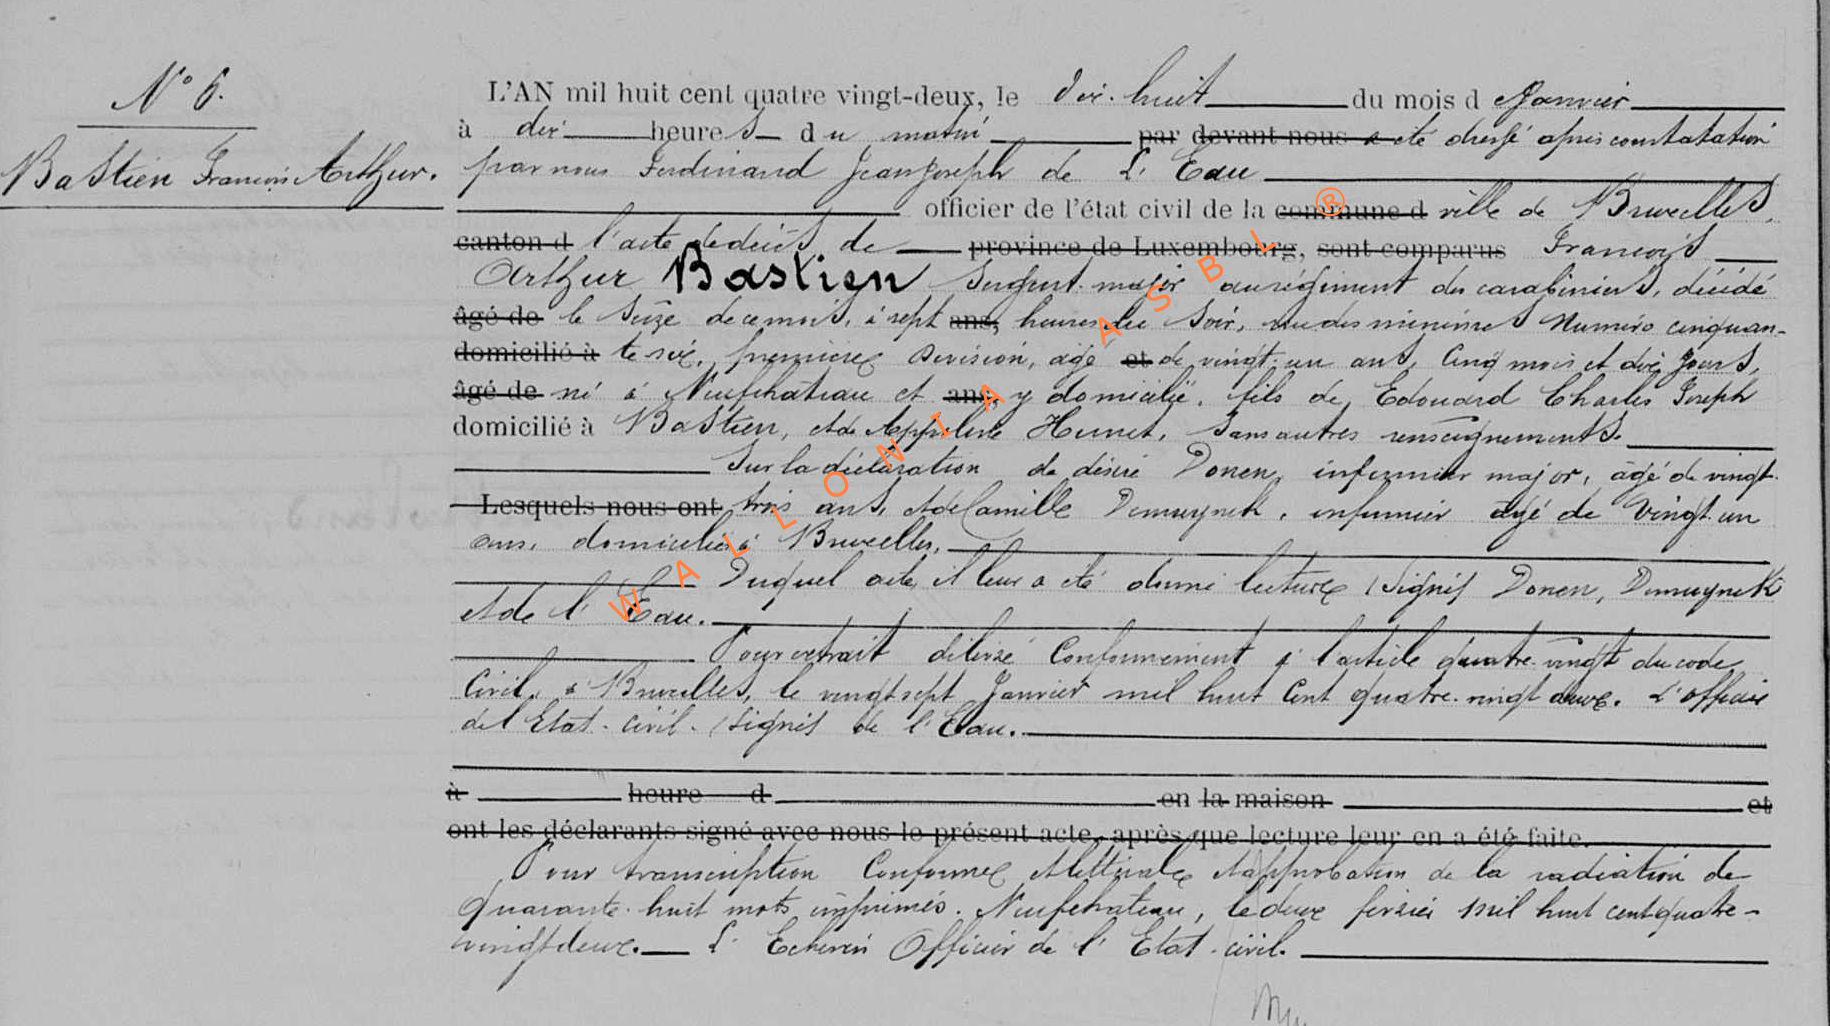 N° 6.
Bastien François Arthur.
L'AN mil huit cent quatre vingt-deux, le dix-huit du mois d Janvier
à dix heures du matin par devant nous a été dressé après constatation
par nous Ferdinand Jean Joseph de L'Eau
officier de l'état civil de la commune d ville de Bruxelles,
canton d l'acte de décès de province de Luxembourg, sont comparus François
Arthur Bastien sergent-major au régiment des carabiniers, décédé
âgé de le seize de ce mois, à sept ans, heures du soir, rue des minimes numéro cinquan-
domicilié à te six, première division, âgé et de vingt-un ans, cinq mois et dix jours,
âgé de né à Neufchâteau et ans, y domicilié, fils de Edouard Charles Joseph
domicilié à Bastien, et de Appoline Hunet, sans autres renseignements.
Sur la déclaration de désiré Donen, infirmier major, âgé de vingt-
Lesquels nous ont trois ans, et de Camille Demuynck, infirmier âgé de vingt-un
ans, domiciliés à Bruxelles,
Duquel acte il leur a été donné lecture (signés) Donen, Demuynck
et de l'Eau.
Pour extrait délivré conformément à l'article quatre-vingt du code
Civil, à Bruxelles, le vingt sept Janvier mil huit cent quatre-vingt deux. L'officier
de l'Etat-civil. (signés) de l'Eau.
à heure d en la maison et
ont les déclarants signé avec nous le présent acte, après que lecture leur en a été faite.
Pour transcription conforme et littérale et approbation de la radiation de
quarante-huit mots imprimés. Neufchâteau, le deux février mil huit cent quatre-
vingt deux. L'Echevin Officier de l'Etat-civil.
WALLONIA ASBL ®